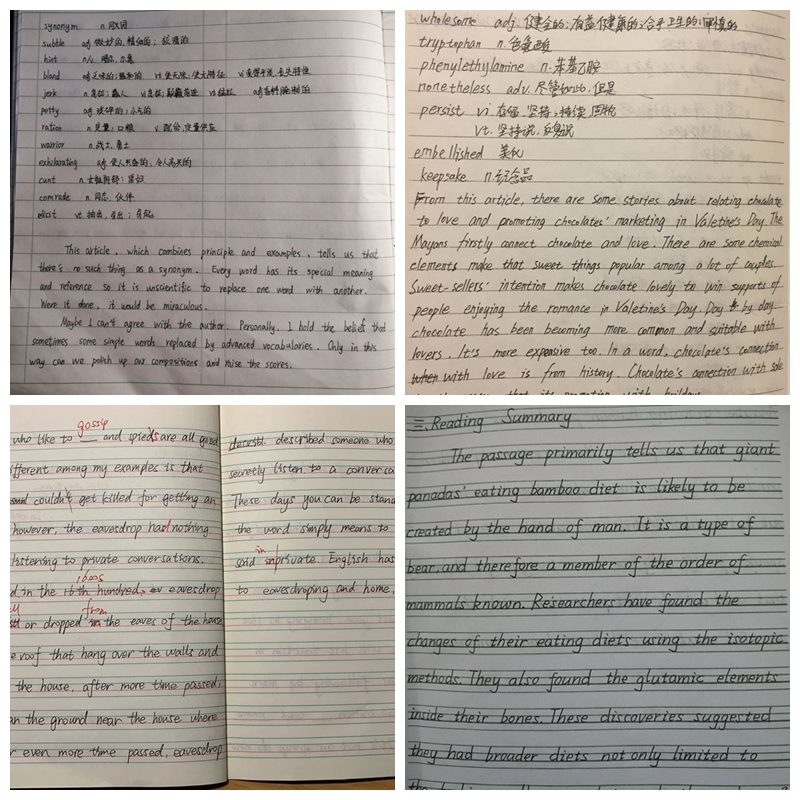 synonym n.同义词
subtle adj 微妙的,精细的;敏锐的
hint n/v. 暗示,示意
bland adj 乏味的;温和的
jerk
petty adj 琐碎的;小气的
ration n.定量;口粮 v. 配给,定量供应
warrior n.战士,勇士
exhilarating adj 使人兴奋的;令人高兴的
cunt n.
comrade n.同志,伙伴
elicit vt 抽出,引出;引起
This article, which combines principle and examples, tells us that
there's no such thing as a synonym. Every word has its special meaning
and reference so it is unscientific to replace one word with another.
Were it done, it would be miraculous.
Maybe I can't agree with the author. Personally, I hold the belief that
sometimes some simple words replaced by advanced vocabularies. Only in this
way can we polish up our compositions and raise the scores.
wholesome adj.健全的;有益健康的;合乎卫生的;审慎的
tryptophan n.色氨酸
phenylethylamine n.苯基乙胺
nonetheless adv.尽管如此,但是
persist vi.存留,坚持,持续,固执
vt.坚持说,反复说
embellished 美化
keepsake n.纪念品
From this article, there are some stories about relating chocolate
to love and promoting chocolates' marketing in Valetine's Day. The
Mayans firstly connect chocolate and love. There are some chemical
elements make that sweet things popular among a lot of couples.
Sweet-sellers' intention makes chocolate lovely to win supports of
people enjoying the romance in Valetine's Day. Day by day
chocolate has been becoming more common and suitable with
lovers. It's more expensive too. In a word, chocolate's connection
when with love is from history. Chocolate's connection with sale
that its promotion with holidays
who like to gossip and spieds are all good
ifferent among my examples is that
could couldn't get killed for getting an
however, the eavesdrop had nothing
listening to private conversations.
d in the 16th hundred, 1600s eavesdrop
or dropped in from the eaves of the house
e roof that hang over the walls and
the house, after more time passed,
an the ground near the house where
r even more time passed, eavesdrop
described someone who
secretly listen to a conversa
These days you can be stand
the word simply means to
said in private. English has
to eavesdroping and home,
三、Reading Summary
The passage primarily tells us that giant
panadas' eating bamboo diet is likely to be
created by the hand of man. It is a type of
bear, and therefore a member of the order of
mammals known. Researchers have found the
changes of their eating diets using the isotopic
methods. They also found the glutamic elements
inside their bones. These discoveries suggested
they had broader diets not only limited to